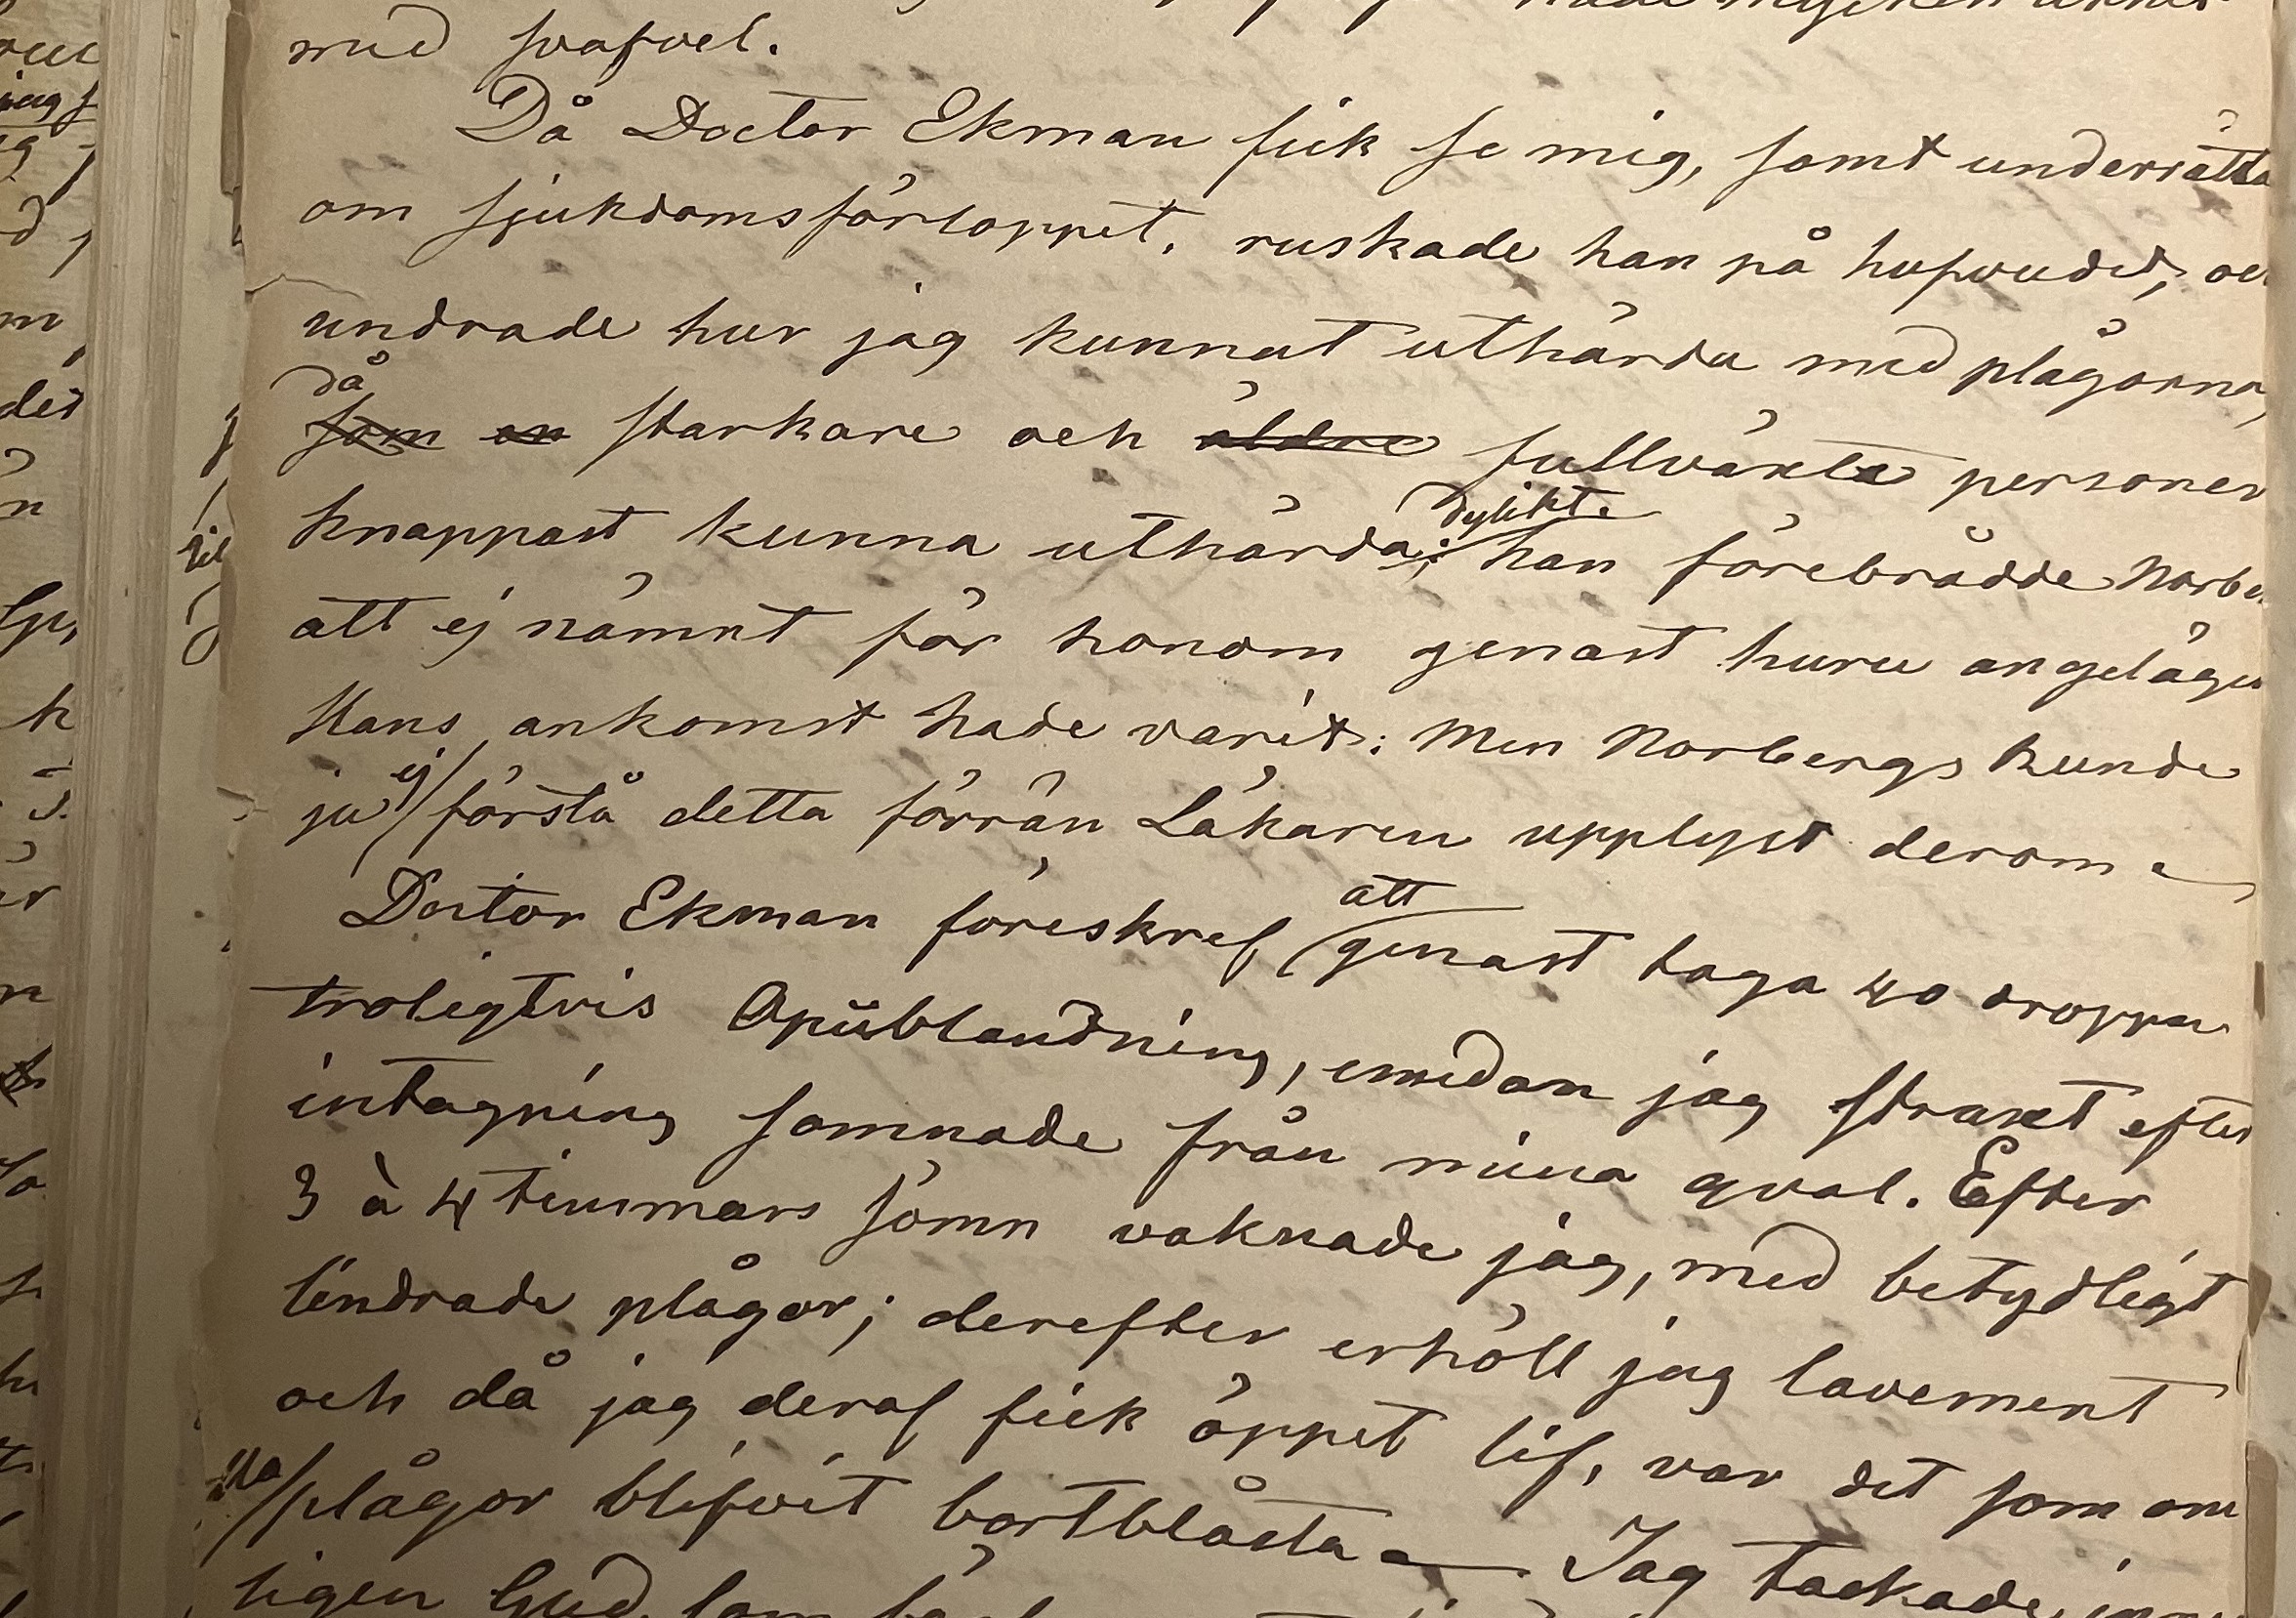 med svafvel.
Då Doctor Ekman fick se mig, samt underrätta
om sjukdomsförloppet, ruskade han på hufvudet, och
undrade hur jag kunnat uthärda med plågorna,
då
som en starkare och äldre fullväxta personer
knappast kunna uthärda; dylikt. han förebrådde Norbe
att ej nämnt för honom genast huru angeläge
Hans ankomst hade varit: Men Norbergs kunde
ju ej förstå detta förrän Läkaren upplyst derom
Doctor Ekman föreskref att genast taga 40 droppar
troligtvis Opiiblandning, emedan jag straxt efter
intagning somnade från mina qval. Efter
3 à 4 timmars sömn vaknade jag, med betydligt
lindrade plågor; derefter erhöll jag lavement
och då jag deraf fick öppet lif, var det som om
plågor blifvit bortblåsta — Jag tackade
ligen Gud, som